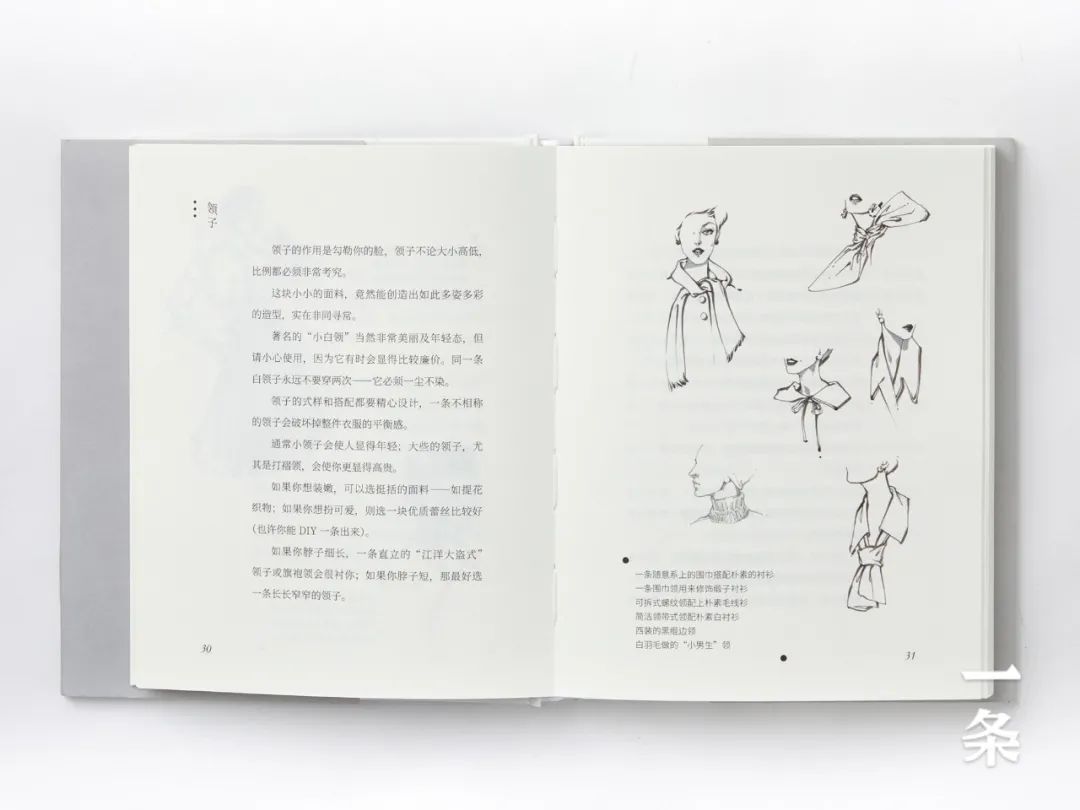 领子
领子的作用是勾勒你的脸，领子不论大小高低，
比例都必须非常考究。
这块小小的面料，竟然能创造出如此多姿多彩
的造型，实在非同寻常。
著名的“小白领”当然非常美丽及年轻态，但
请小心使用，因为它有时会显得比较廉价。同一条
白领子永远不要穿两次——它必须一尘不染。
领子的式样和搭配都要精心设计，一条不相称
的领子会破坏掉整件衣服的平衡感。
通常小领子会使人显得年轻；大些的领子，尤
其是打褶领，会使你更显得高贵。
如果你想装嫩，可以选挺括的面料——如提花
织物；如果你想扮可爱，则选一块优质蕾丝比较好
(也许你能 DIY 一条出来)。
如果你脖子细长，一条直立的“江洋大盗式”
领子或旗袍领会很衬你；如果你脖子短，那最好选
一条长长窄窄的领子。
30
一条随意系上的围巾搭配朴素的衬衫
一条围巾领用来修饰缎子衬衫
可拆式螺纹领配上朴素毛线衫
简洁领带式领配朴素白衬衫
西装的黑缎边领
白羽毛做的“小男生”领
31
一条